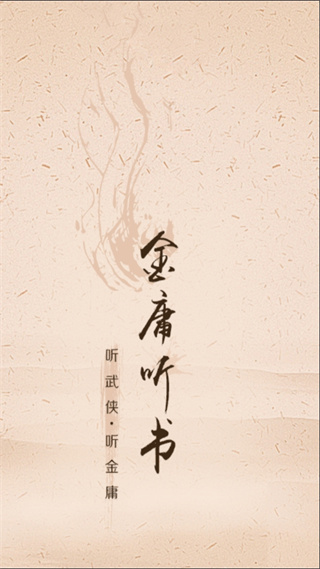 金庸听书
听武侠·听金庸